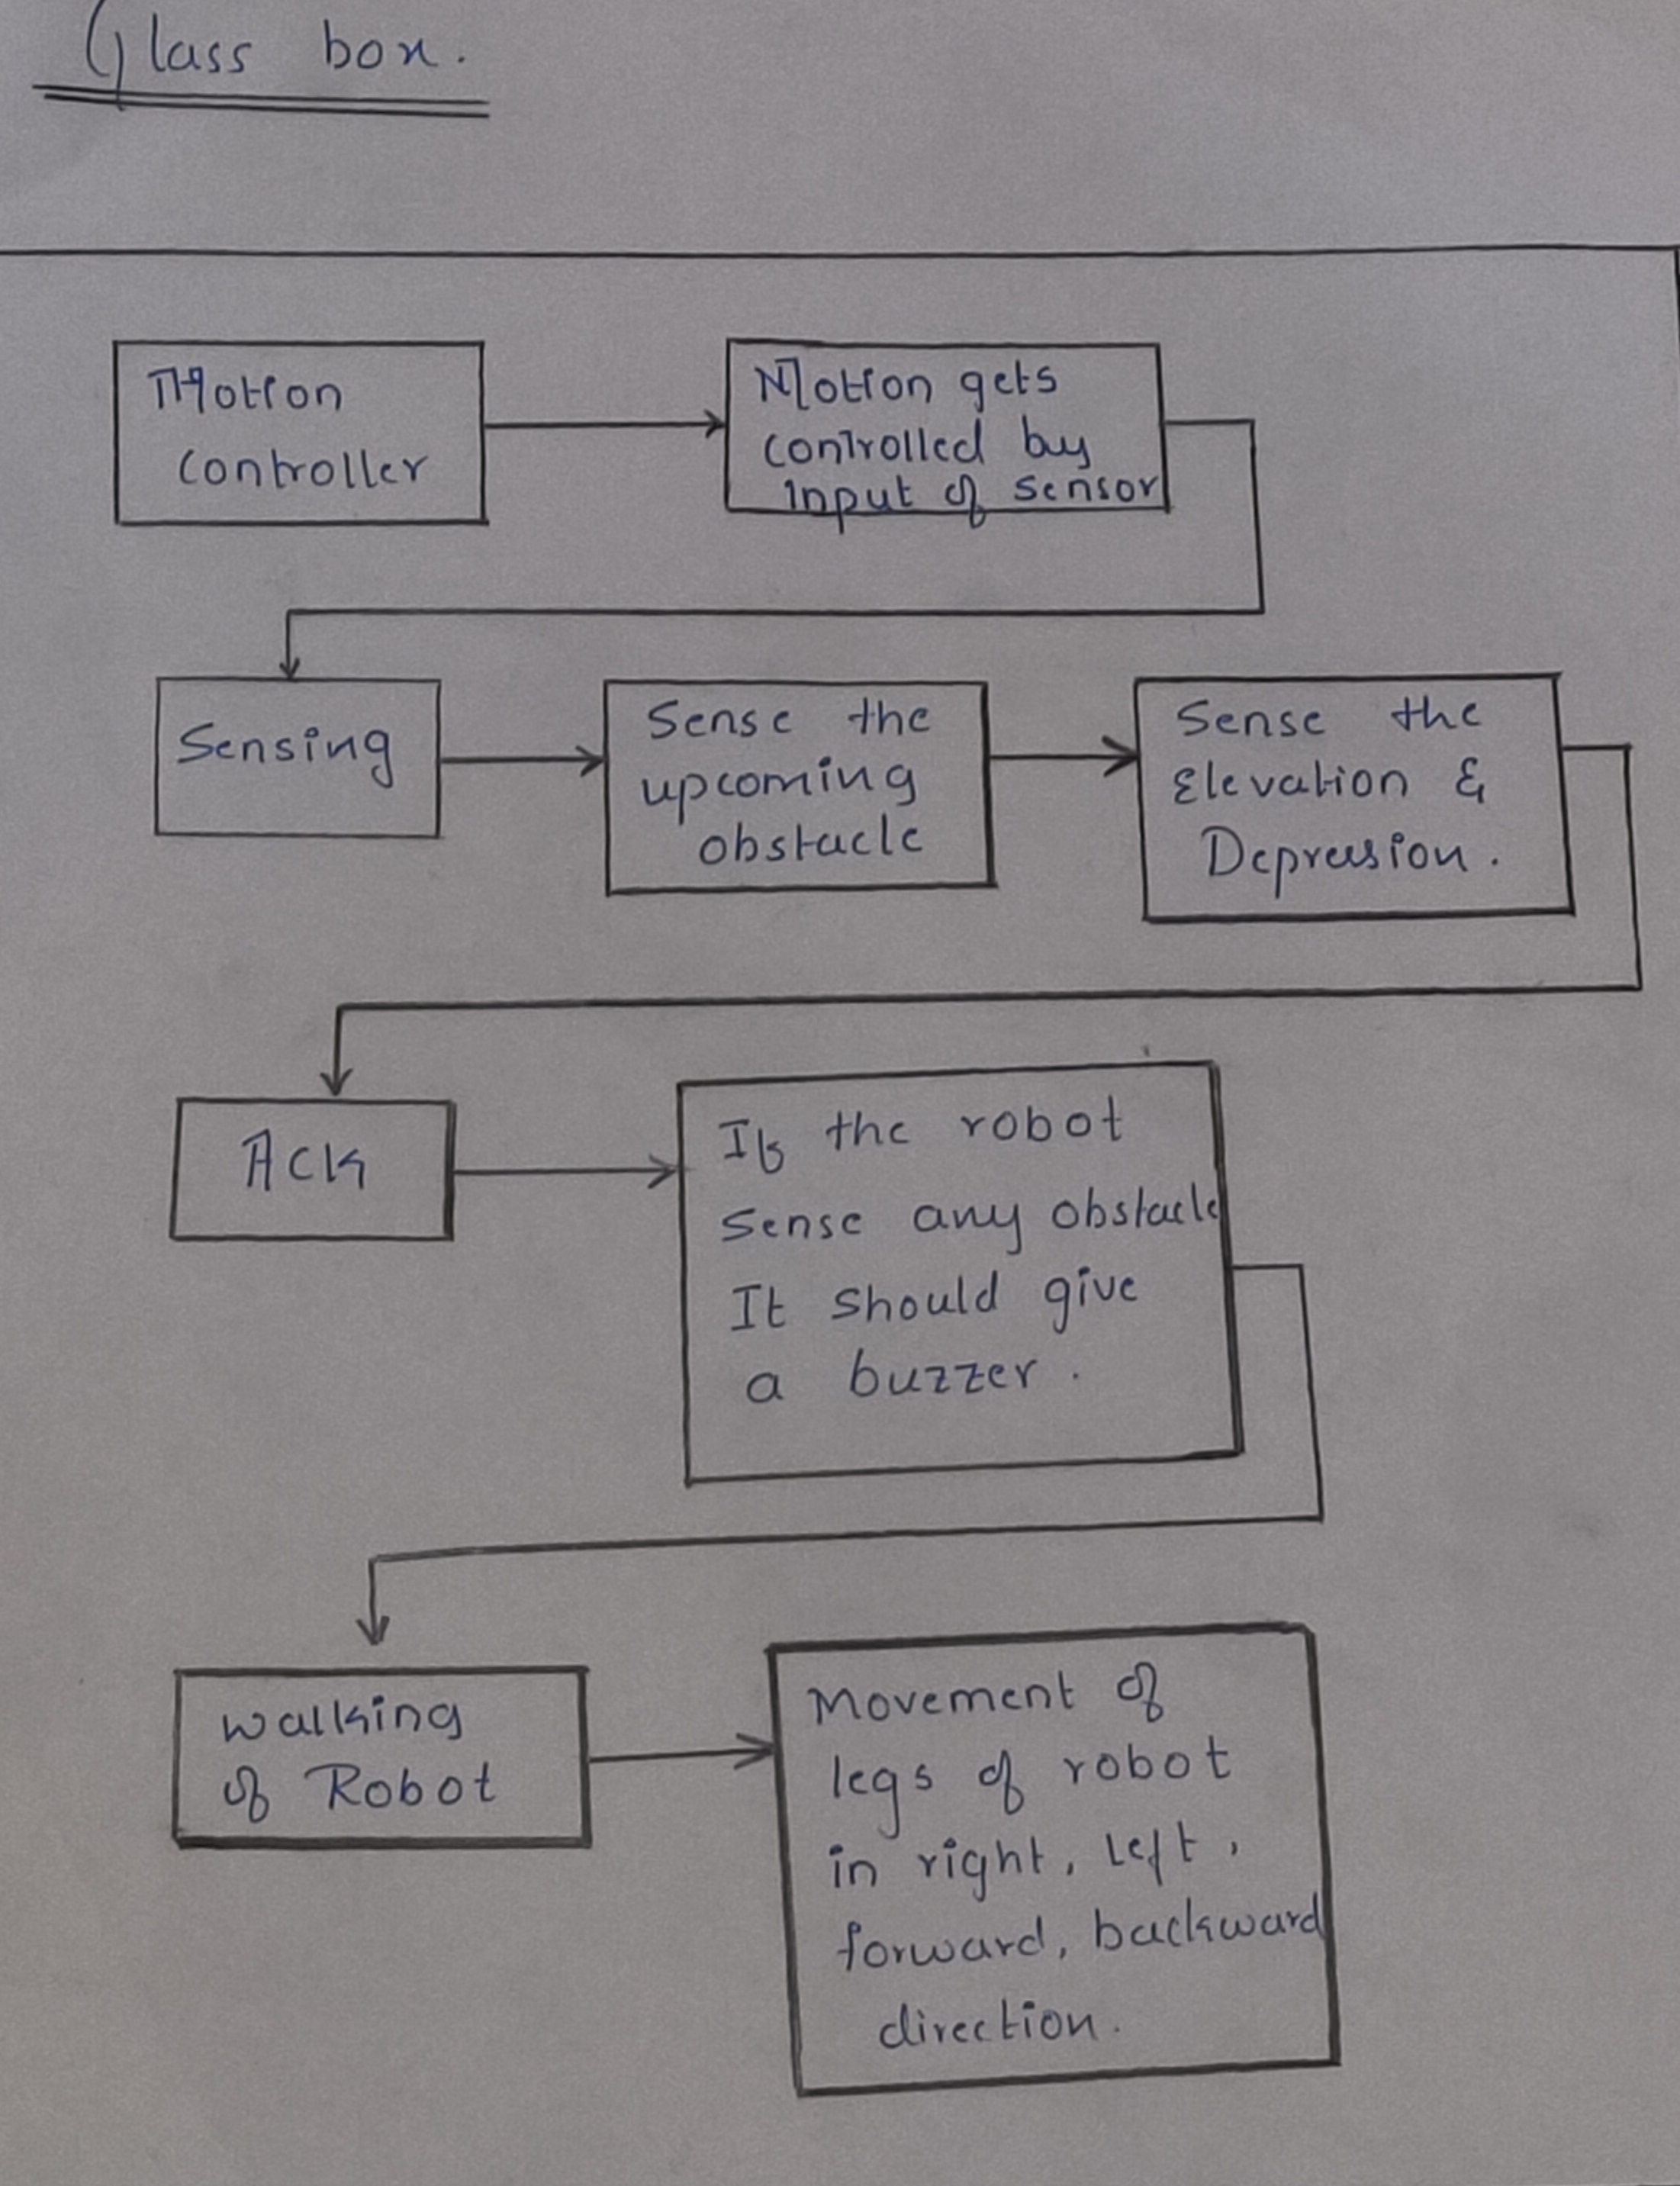 Glass box.
Motion
controller
Motion gets
controlled by
input of sensor
Sensing
Sense the
upcoming
obstacle
Sense the
Elevation &
Depression.
Ack
If the robot
Sense any obstacle
It should give
a buzzer.
walking
of Robot
Movement of
legs of robot
in right, left,
forward, backward
direction.